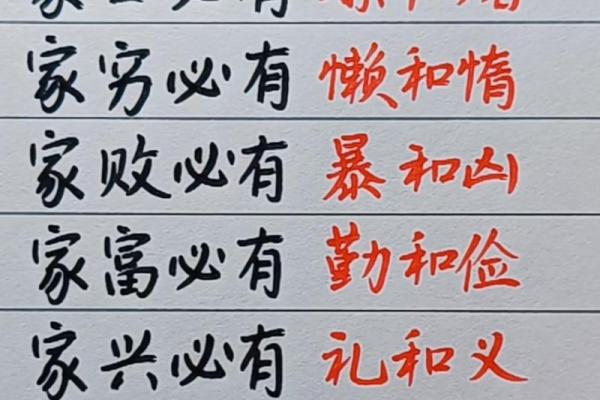 家穷必有 懒和惰
家败必有 暴和凶
家富必有 勤和俭
家兴必有 礼和义